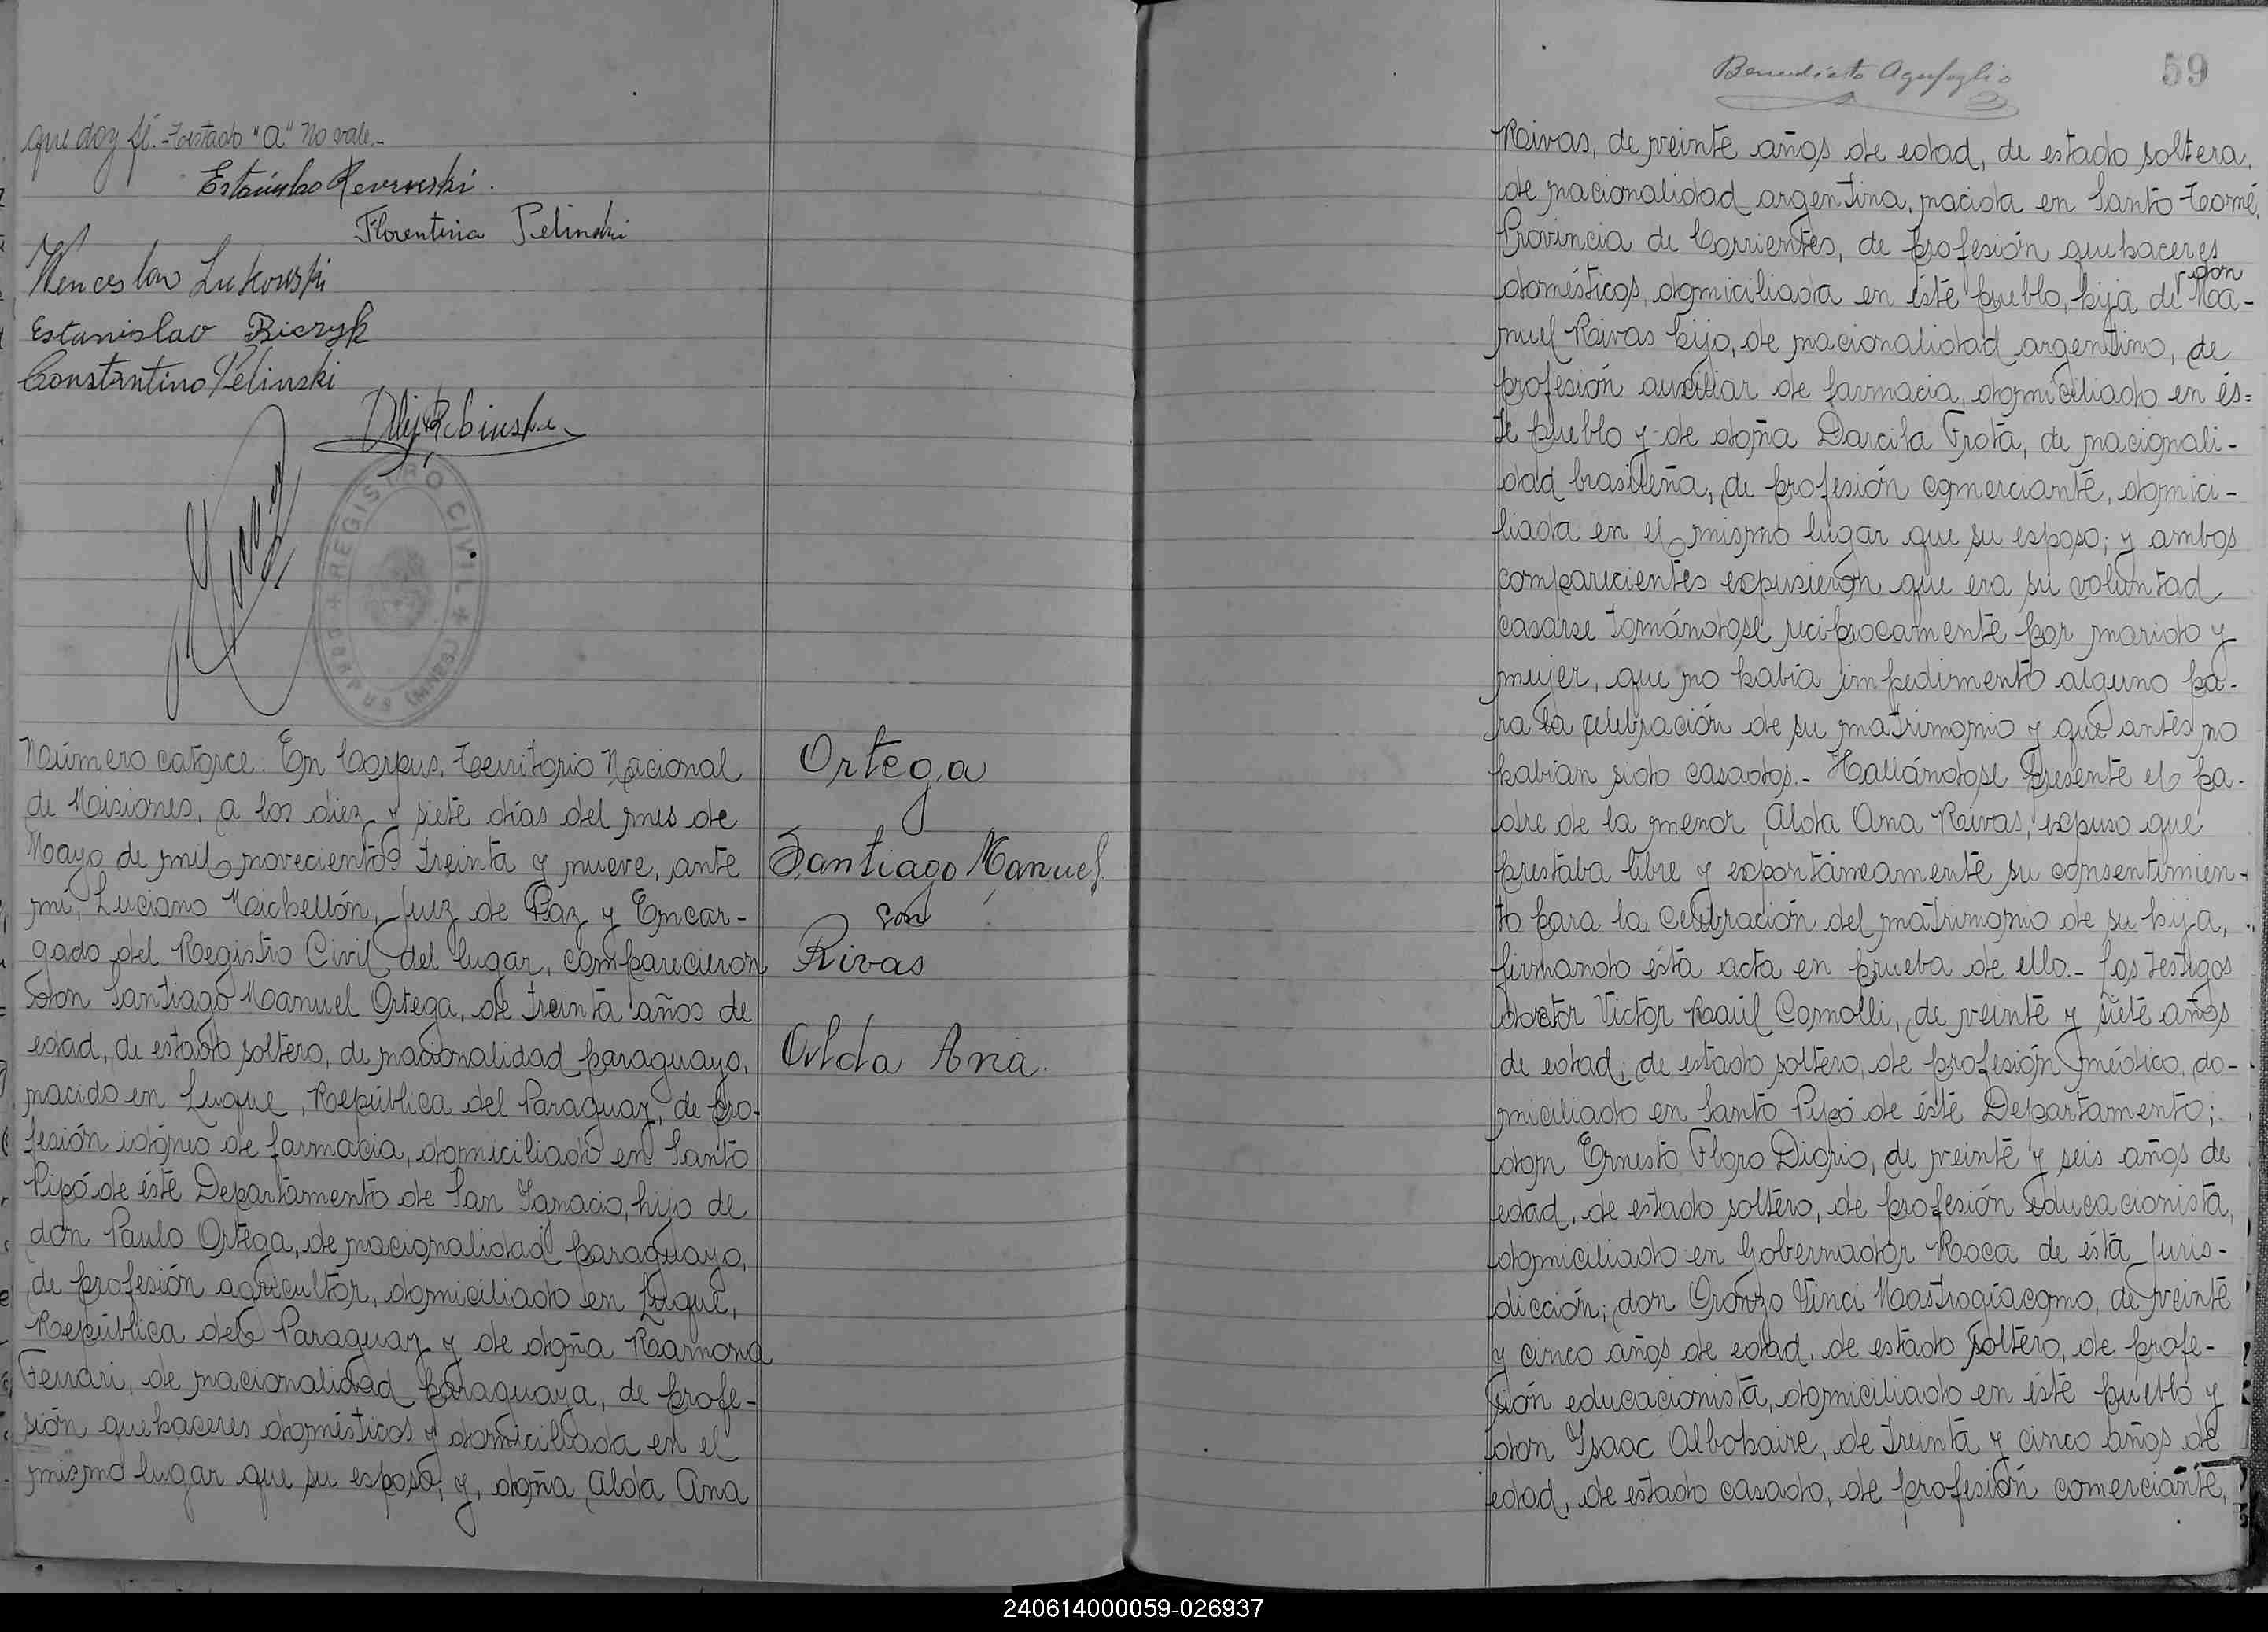 que doy fé. - Testado "a" No vale.-
Florentina Pelinski
Wenceslao Lukowski
Estanislao Biczyk
Constantino Pelinski
REGISTRO CIVIL
CORPUS (MNES)
Número catorce: En Corpus, Territorio Nacional
de Misiones, a los diez y siete días del mes de
Mayo de mil novecientos treinta y nueve, ante
mí, Luciano Michellón, Juez de Paz y Encar-
gado del Registro Civil del lugar, comparecieron
don Santiago Manuel Ortega, de treinta años de
edad, de estado soltero, de nacionalidad paraguayo,
nacido en Luque, República del Paraguay, de pro-
fesión idóneo de farmacia, domiciliado en Santo
Pipó de éste Departamento de San Ignacio, hijo de
don Paulo Ortega, de nacionalidad paraguayo,
de profesión agricultor, domiciliado en Luque,
República del Paraguay y de doña Ramona
Ferrari, de nacionalidad paraguaya, de profe-
sión quehaceres domésticos y domiciliada en el
mismo lugar que su esposo; y, doña Alda Ana
Ortega
Santiago Manuel
con
Rivas
Alda Ana.
59
Benedicto
Rivas, de veinte años de edad, de estado soltera,
de nacionalidad argentina, nacida en Santo Tomé,
Provincia de Corrientes, de profesión quehaceres
domésticos, domiciliada en éste pueblo, hija de don Ma-
nuel Rivas hijo, de nacionalidad argentino, de
profesión auxiliar de farmacia, domiciliado en és=
te pueblo y de doña Darcila Frota, de nacionali-
dad brasileña, de profesión comerciante, domici-
liada en el mismo lugar que su esposo; y ambos
comparecientes expusieron que era su voluntad
casarse tomándose recíprocamente por marido y
mujer, que no había impedimento alguno pa-
ra la celebración de su matrimonio y que antes no
habían sido casados.- Hallándose presente el pa-
dre de la menor Alda Ana Rivas, expuso que
prestaba libre y expontáneamente su consentimien-
to para la celebración del matrimonio de su hija,
firmando ésta acta en prueba de ello.- Los testigos
doctor Victor Raúl Comolli, de veinte y siete años
de edad, de estado soltero, de profesión médico, do-
miciliado en Santo Pipó de éste Departamento;
don Ernesto Floro Diorio, de veinte y seis años de
edad, de estado soltero, de profesión educacionista,
domiciliado en Gobernador Roca de ésta Juris-
dicción; don Oronzo Vinci Mastrogíacomo, de veinte
y cinco años de edad, de estado soltero, de profe-
sión educacionista, domiciliado en éste pueblo y
don Isaac Albohaire, de treinta y cinco años de
edad, de estado casado, de profesión comerciante,
240614000059-026937